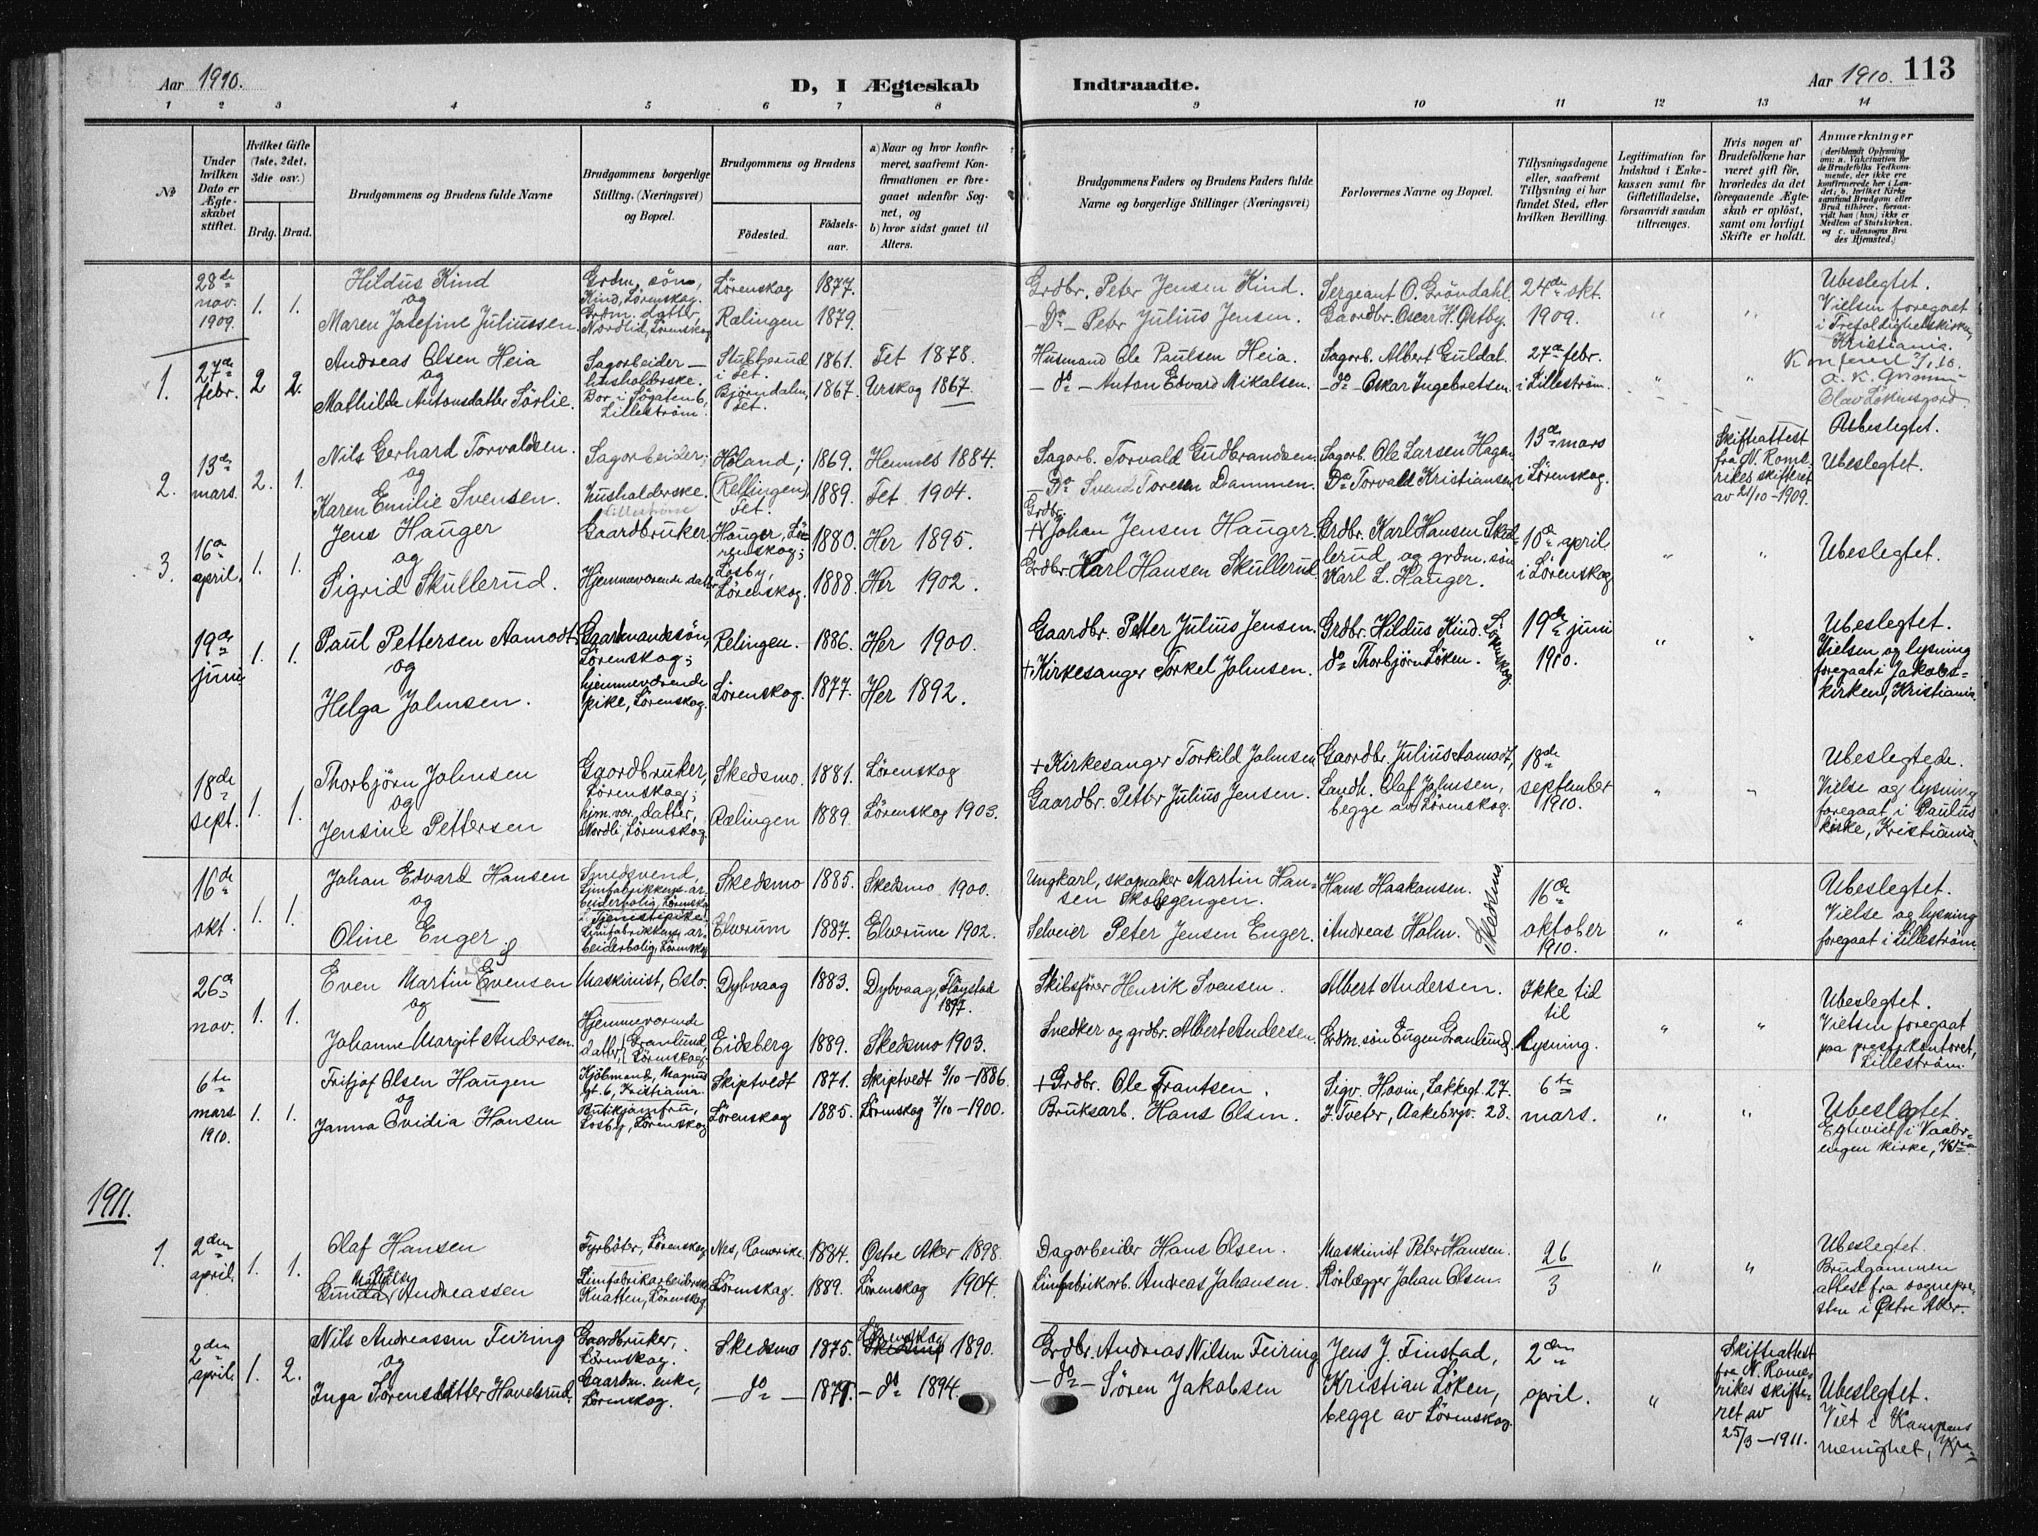 Aar 1910.
D, I Ægteskab
Indtraadte.
Aar 1910. 113
1 2 3 4 5 6 7 8 9 10 11 12 13 14
No
Under hvilken Dato er Ægteskabet stiftet.
Hvilket Gifte (1ste, 2det, 3die osv.)
Brdg. Brud.
Brudgommens og Brudens fulde Navne
Brudgommens borgerlige Stilling. (Næringsvei) og Bopæl.
Brudgommens og Brudens
Fødested. Fødselsaar.
a) Naar og hvor konfirmeret, saafremt Konfirmationen er foregaaet udenfor Sognet, og
b) hvor sidst gaaet til Alters.
Brudgommens Faders og Brudens Faders fulde Navne og borgerlige Stillinger (Næringsvei)
Forlovernes Navne og Bopæl.
Tillysningsdagene eller, saafremt Tillysning ei har fundet Sted, efter hvilken Bevilling.
Legitimation for Indskud i Enkekassen samt for Giftetilladelse, forsaavidt saadan tiltrænges.
Hvis nogen af Brudefolkene har været gift før, hvorledes da det foregaaende Ægteskab er opløst, samt om lovligt Skifte er holdt.
Anmærkninger
28de nov. 1909. 1. 1.
Hildus Kind
og
Maren Josefine Juliussen.
Grdm. søn, Kind, Lörenskog. Grdm. datter, Nordlid, Lörenskog
Lørenskog 1877.
Rælingen 1879.
Grdbr. Peter Jensen Kind.
— Do — Peter Julius Jensen.
Sergeant O. Gröndahl.
Gaardbr. Oscar H. Østby.
24de okt. 1909. " "
Ubeslegtet. Vielsen foregaat i Trefoldighetskirken, Kristiania.
1. 27de febr. 2 2.
Andreas Olsen Heia
og
Mathilde Antonsdatter Sörlie.
Sagarbeider — husholderske. Bor i Søgaten 6, Lilleström.
i Fet. 1861. Fet 1878.
Bjørndalen, Fet. 1867. Urskog 1867
Husmand Ole Paulsen Heia.
— do — Anton Edvard Mikalsen.
Sagarb. Albert Guldat.
— do — Oskar Ingebretsen.
27de febr. i Lilleström. " "
2. 13de mars. 2. 1.
Nils Gerhard Torvaldsen.
og
Karen Emilie Svensen.
Sagarbeider;
husholderske. Lilleström
Høland; 1869. Hemnes 1884.
(Rellingen) Fet. 1889. Fet 1904.
Sagarb. Torvald Gudbrandsen.
— Do Svend Toresen Dammen.
Sagarb. Ole Larsen Hagen
Do Torvald Kristiansen
13de mars i Lörenskog.
Skifteattest fra N. Romerikes skifteret av 21/10 - 1909.
Ubeslegtet.
Ubeslegtet.
3. 16de april. 1. 1.
Jens Hauger
og
Sigrid Skullerud.
Gaardbruker
Hjemmeværende datter
Hauger, Lörenskog; 1880. Her 1895.
Losby, Lörenskog. 1888. Her 1902.
Grdbr. Johan Jensen Hauger.
Grdbr. Karl Hansen Skullerud
Grdbr. Karl Hansen Skullerud og grdm. søn Karl L. Hauger.
10de april i Lörenskog " "
Ubeslegtet.
19de juni 1. 1.
Paul Pettersen Aamodt.
og
Helga Johnsen.
Gaardmandssön, Lörenskog; hjemmeværende pike, Lörenskog.
Relingen. 1886. Her 1900.
Lörenskog. 1877. Her 1892.
Gaardbr. Petter Julius Jensen.
+ Kirkesanger Torkel Johnsen.
Grdbr. Hildus Kind.
do Thorbjörn Löken. Lörenskog
19de juni 1910. " "
Ubeslegtet. Vielsen og lysning foregaat i Jakobskirken, Kristiania
18de sept. 1. 1.
Thorbjörn Johnsen
og
Jensine Pettersen
Gaardbruker, Lörenskog; hjm. vær. datter, Nordli, Lörenskog.
Skedsmo. 1881. Lörenskog
Rælingen 1889. Lörenskog 1903.
+ Kirkesanger Torkild Johnsen
Gaardbr. Petter Julius Jensen.
Gaardbr. Julius Aamodt,
Landh. Olaf Johnsen, begge av Lörenskog.
18de september 1910. " "
Ubeslegtede. Vielse og lysning foregaat i Paulus kirke, Kristiania
16de okt. 1. 1.
Johan Edvard Hansen
og
Oline Enger.
Smedsvend, Limfabrikkens arbeiderbolig, Lörenskog. Tjenestepike, Limfabrikkens arbeiderbolig, Lörenskog
Skedsmo 1885. Skedsmo 1900.
Elverum 1887. Elverum 1902.
Ungkarl, skomaker Martin Hansen
Selveier Peter Jensen Enger.
Hans Haakonsen.
Andreas Holm. Skedsmo.
16de oktober 1910. " "
Ubeslegtet. Vielse og lysning foregaat i Lilleström
26de nov. 1. 1.
Even Martin Evensen
og
Johanne Margit Andersen.
Maskinist, Oslo.
Hjemmeværende datter, (Granlund, Lörenskog)
Dybvaag 1883. Dybvaag, 1897.
Eidsberg 1889. Skedsmo 1903.
Skibsfører Henrik Svensen.
Snedker og grdbr. Albert Andersen.
Albert Andersen.
Grdm. søn Eugen Granlund.
Ikke tid til lysning. " "
Ubeslegtet. Vielsen foregaat paa prestekontoret, Lilleström.
6te mars 1910. 1. 1.
Fritjof Olsen Haugen
og
Janna Ovidia Hansen
Kjöbmand, Magnusgt. 6, Kristiania. Butikjomfru, Losby, Lörenskog
Skiptvedt 1871. Skiptvedt 3/10 - 1886.
Lörenskog 1885. Lörenskog 7/10 - 1900.
+ Grdbr. Ole Frantsen.
Bruksarb. Hans Olsen.
Sigv. Hovin, Lakkegt. 27.
J. Tveter, Aakebergv. 28.
6te mars. " "
Ubeslegtet. Egteviet i Vaalerengen kirke, Kra.
1911.
1. 2den april. 1. 1.
Olaf Hansen
Gunda Andreassen
Fyrböter, Lörenskog
Limfabrikarbeiderske Knatten, Lörenskog.
Nes, Romerike. 1884. Østre Aker 1898.
Lörenskog. 1889. Lörenskog 1904.
Dagarbeider Hans Olsen.
Limfabrikarb. Andreas Johansen.
Maskinist Peter Hansen.
Rörlægger Johan Olsen.
26/3 " "
Ubeslegtet. Brudgommen attest fra sognepresten i Østre Aker.
2den april. 1. 2.
Nils Andreassen Feiring
og
Inga Sörensdatter Hovelsrud.
Gaardbruker, Lörenskog. Gaardm. enke, Lörenskog.
Skedsmo 1875. Lörenskog 1890.
— do — 1871. — do 1894.
Grdbr. Andreas Nilsen Feiring
— do — Sören Jakobsen
Jens J. Finstad,
Kristian Löken, begge av Lörenskog.
2den april. "
Skifteattest fra N. Romerikes skifteret av 25/3 - 1911.
Ubeslegtet. Viet i Kampens menighet, Kra